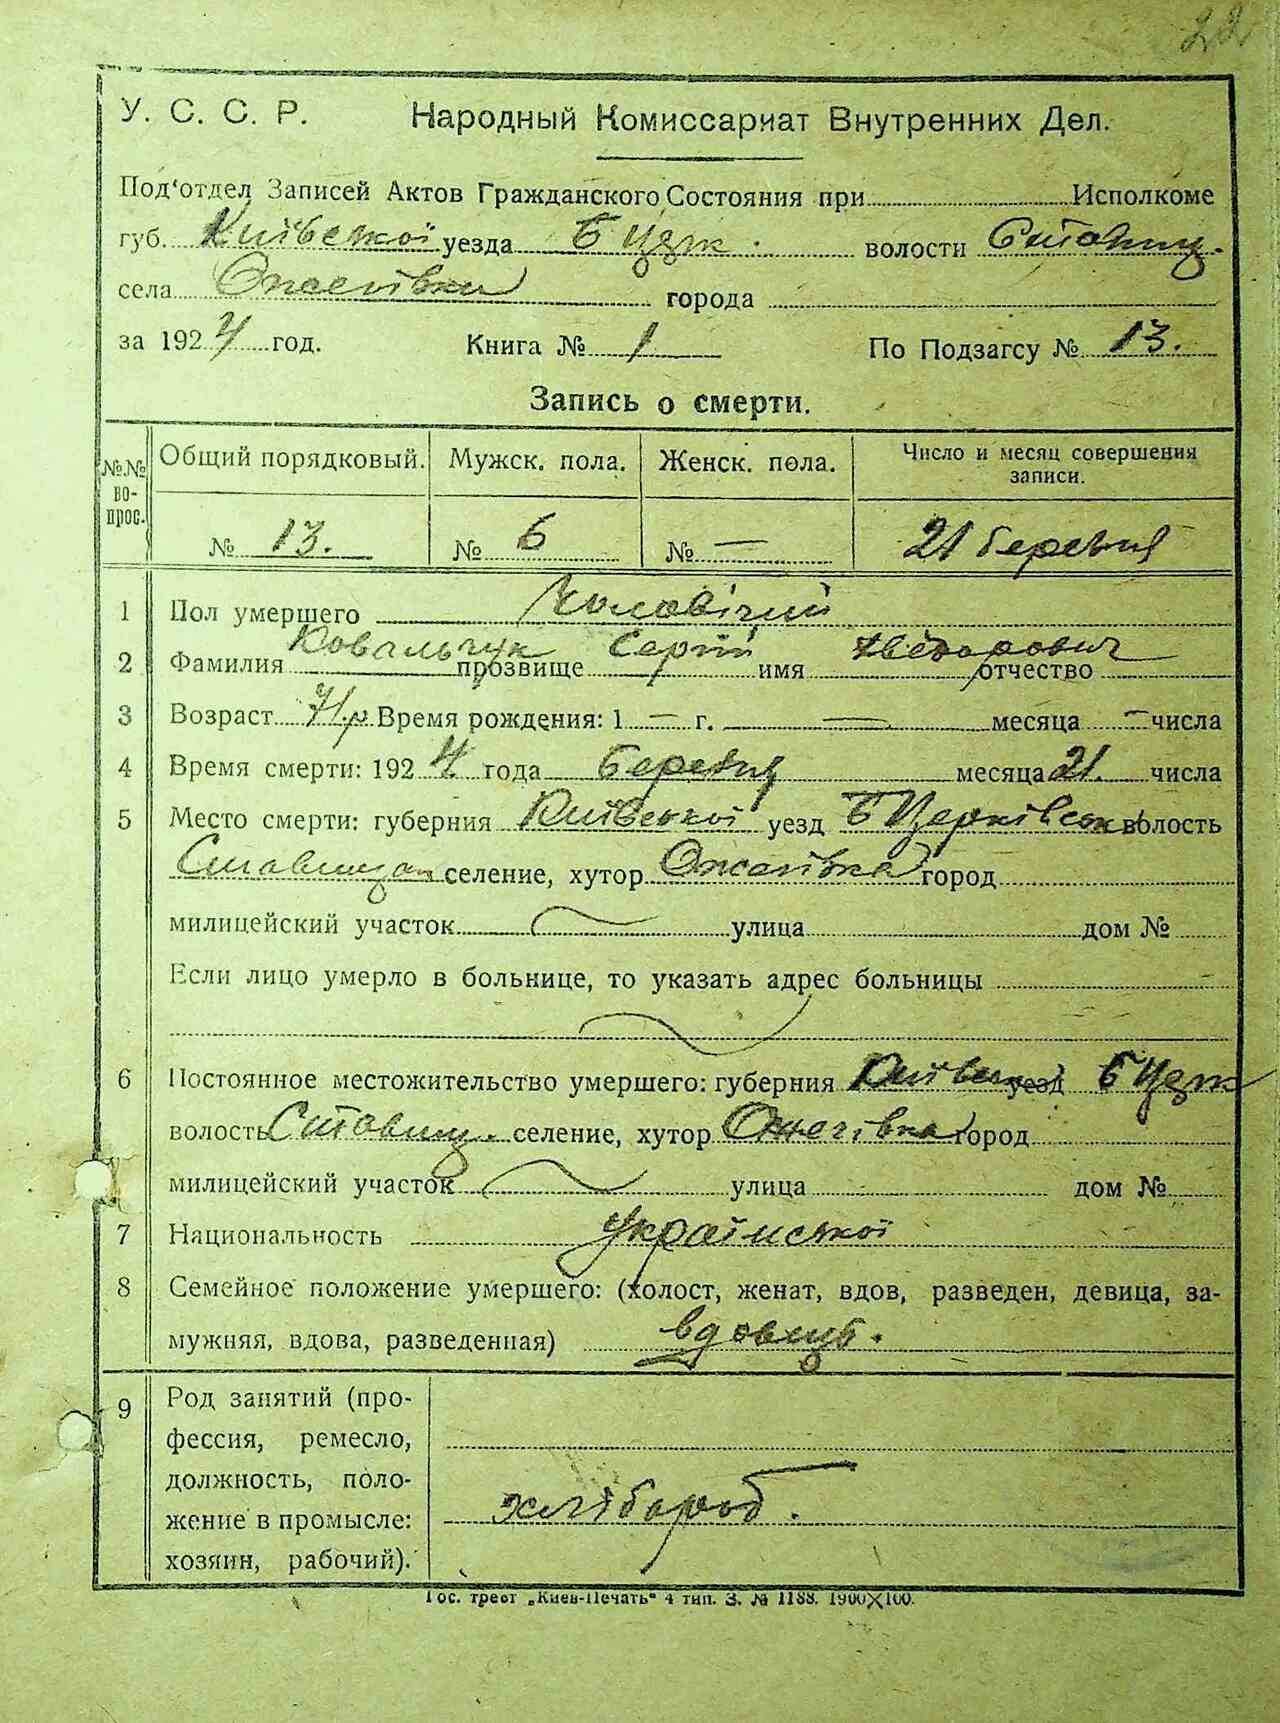 22
У. С. С. Р. Народный Комиссариат Внутренних Дел.
Под'отдел Записей Актов Гражданского Состояния при Исполкоме
губ. Київської уезда Б Церк. волости Ставищ.
села Ожегівки города
за 1924 год. Книга № 1 По Подзагсу № 13.
Запись о смерти.
№№ вопрос. Общий порядковый. Мужск. пола. Женск. пола. Число и месяц совершения записи.
№ 13. № 6 № — 21 березня
1 Пол умершего Чоловічий
2 Фамилия Ковальчук прозвище Сергій имя Хведорович отчество
3 Возраст 71 р Время рождения: 1 — г. — месяца — числа
4 Время смерти: 1924 года березня месяца 21. числа
5 Место смерти: губерния Київської уезд Б Церківськ волость
Ставищан селение, хутор Ожегівка город
милицейский участок улица дом №
Если лицо умерло в больнице, то указать адрес больницы —
6 Постоянное местожительство умершего: губерния Київськ уезд Б Церк
волость Ставищ. селение, хутор Ожегівка город
милицейский участок улица дом №
7 Национальность Української
8 Семейное положение умершего: (холост, женат, вдов, разведен, девица, за-
мужняя, вдова, разведенная) вдовець.
9 Род занятий (про-
фессия, ремесло,
должность, поло-
жение в промысле:
хозяин, рабочий). хлібороб.
Гос. трест „Киев-Печать" 4 тип. З. № 1188. 1900×100.